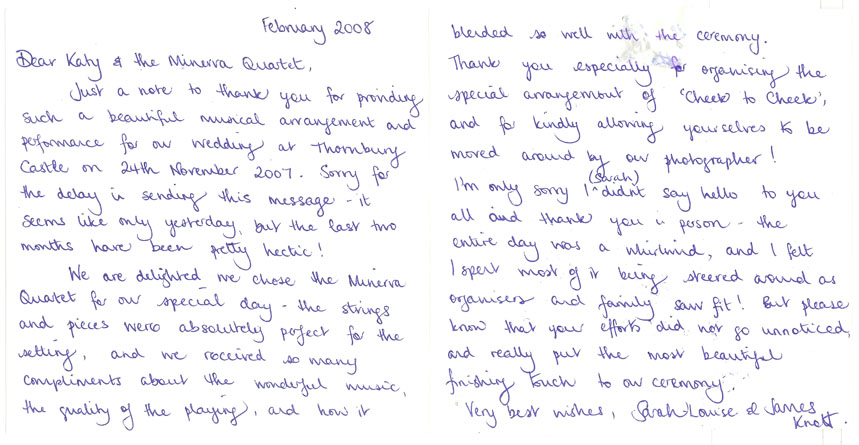 February 2008
Dear Katy & the Minerva Quartet,
Just a note to thank you for providing
such a beautiful musical arrangement and
performance for our wedding at Thornbury
Castle on 24th November 2007. Sorry for
the delay in sending this message - it
seems like only yesterday, but the last two
months have been pretty hectic!
We are delighted we chose the Minerva
Quartet for our special day - the strings
and pieces were absolutely perfect for the
setting, and we received so many
compliments about the wonderful music,
the quality of the playing, and how it
blended so well with the ceremony.
Thank you especially for organising the
special arrangement of 'Cheek to Cheek',
and for kindly allowing yourselves to be
moved around by our photographer!
I'm only sorry I ^(Sarah) didn't say hello to you
all and thank you in person - the
entire day was a whirlwind, and I felt
I spent most of it being steered around as
organisers and family saw fit! But please
know that your efforts did not go unnoticed,
and really put the most beautiful
finishing touch to our ceremony.
Very best wishes, Sarah Louise & James
Knott.